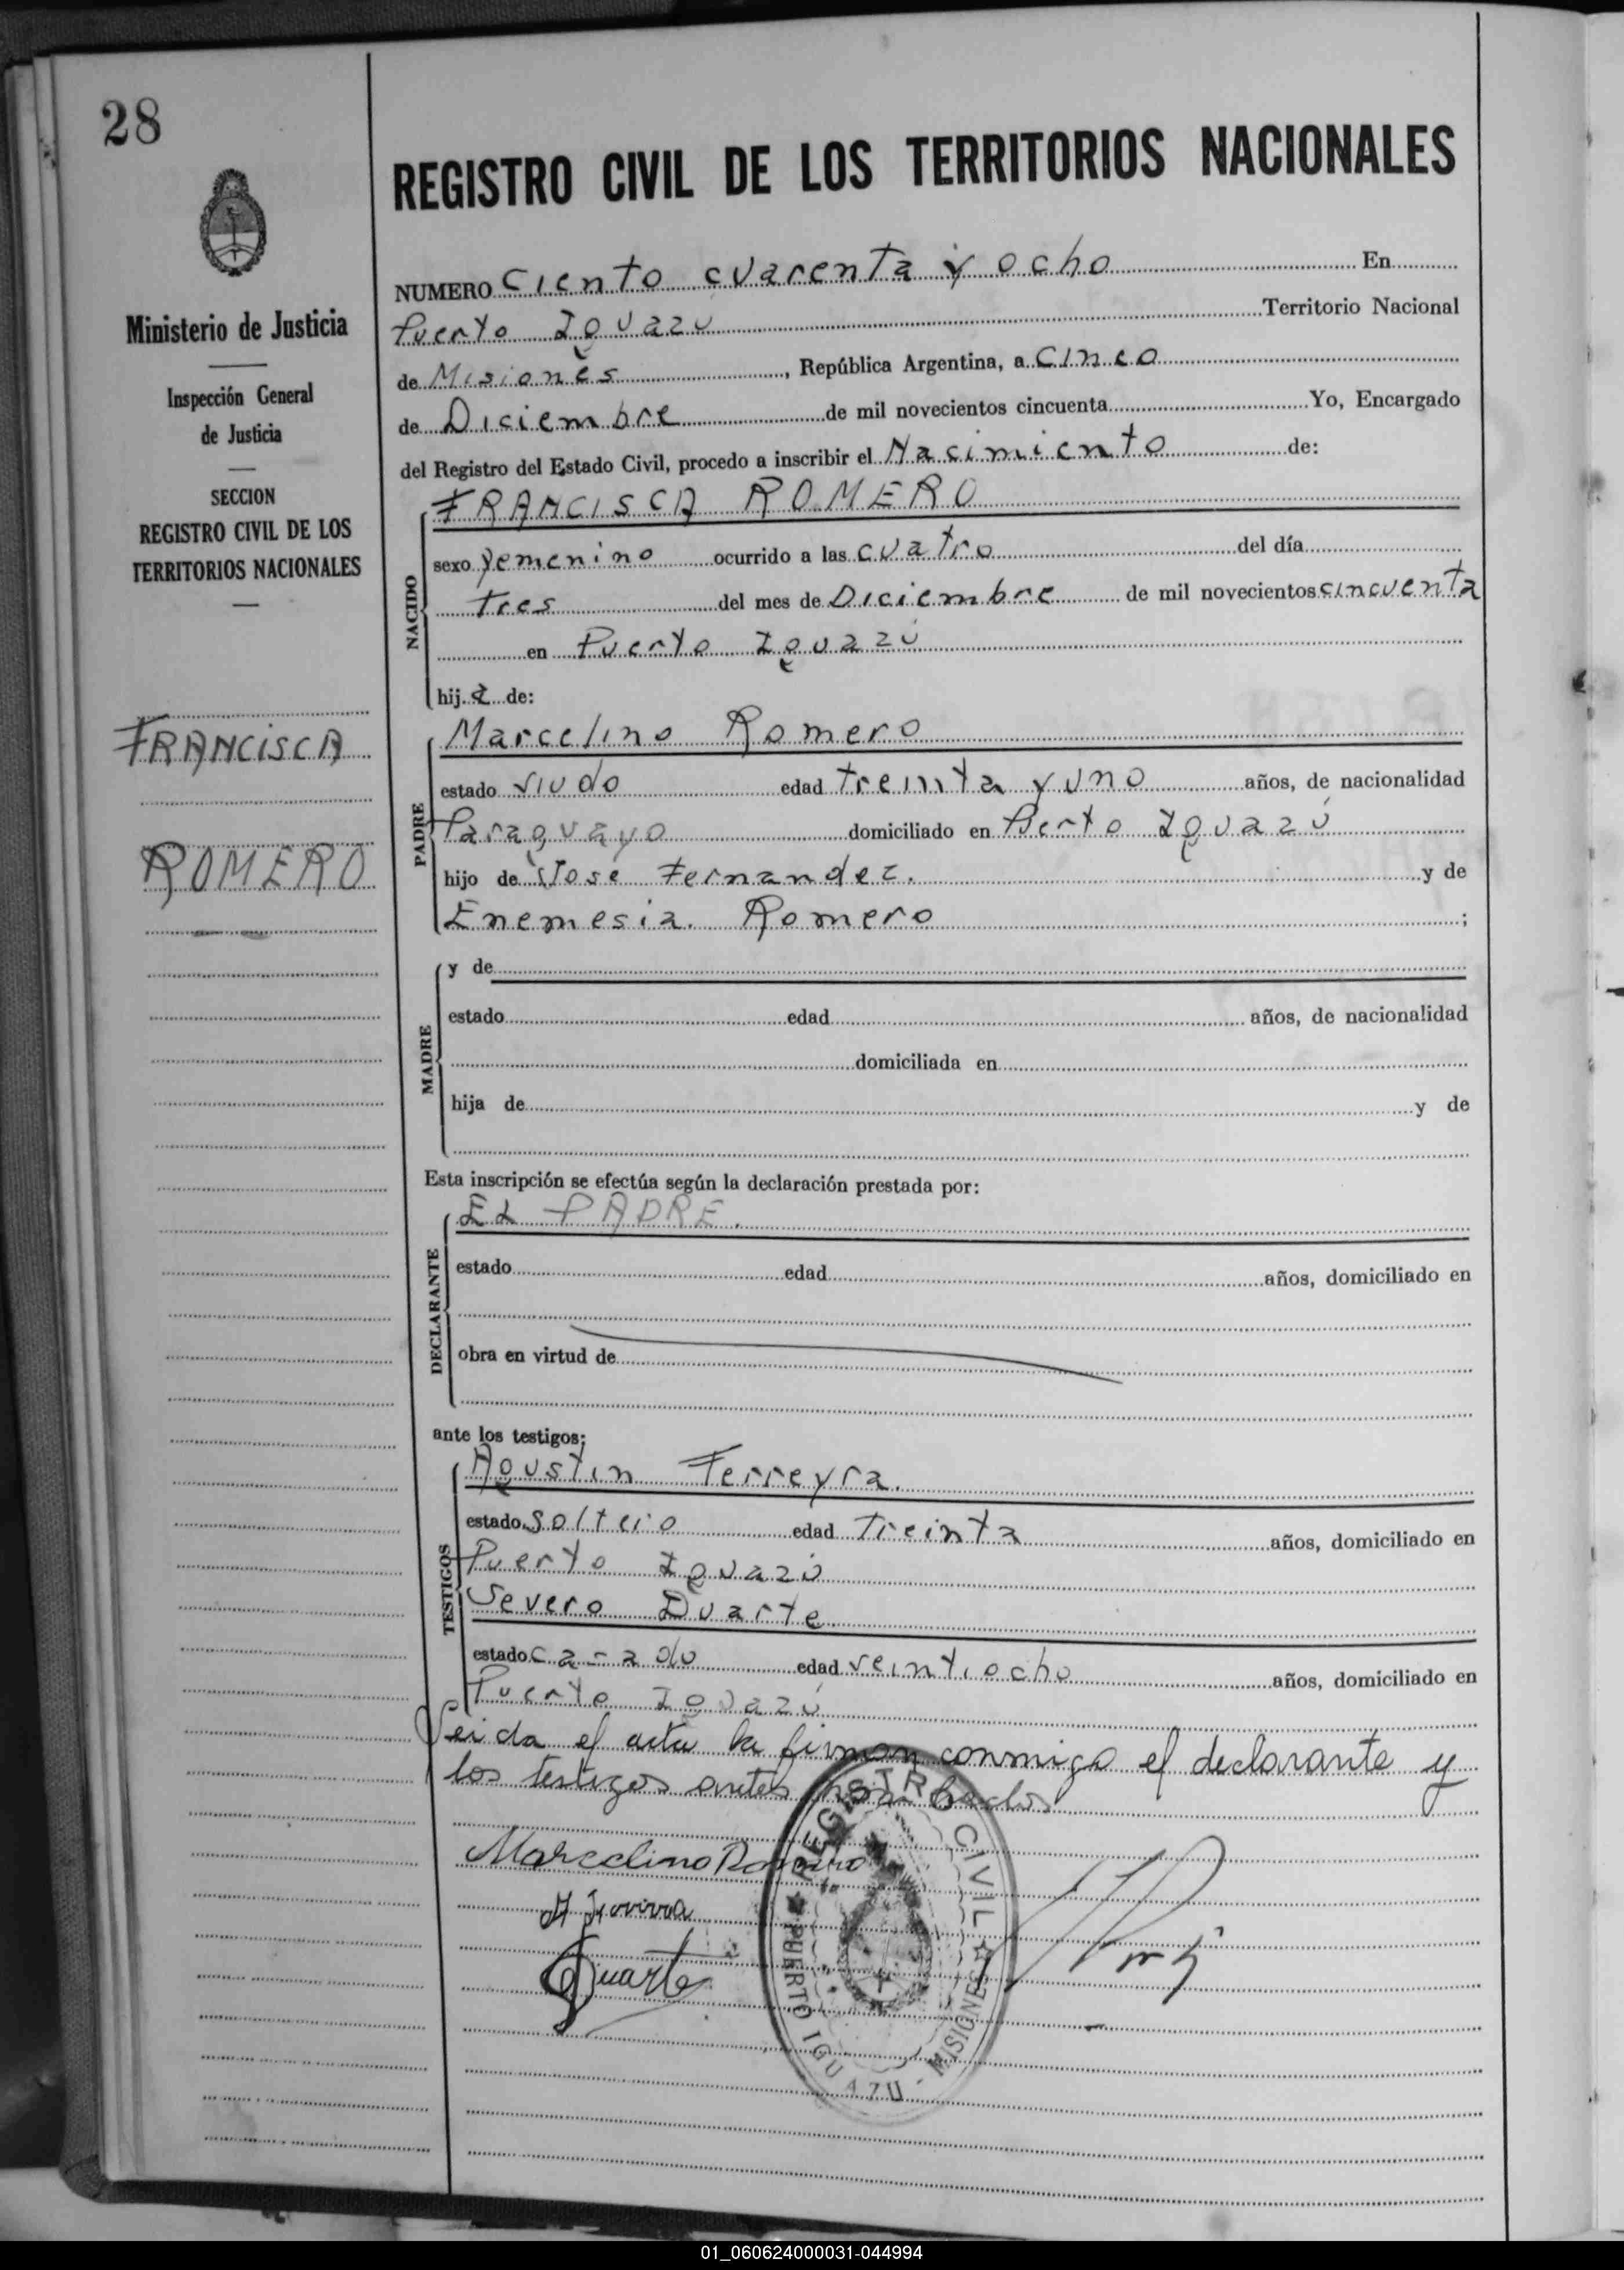 28
REGISTRO CIVIL DE LOS TERRITORIOS NACIONALES
Ministerio de Justicia
Inspección General
de Justicia
SECCION
REGISTRO CIVIL DE LOS
TERRITORIOS NACIONALES
FRANCISCA
ROMERO
NUMERO Ciento cuarenta y ocho En
Puerto Iguazu Territorio Nacional
de Misiones, República Argentina, a Cinco
de Diciembre de mil novecientos cincuenta Yo, Encargado
del Registro del Estado Civil, procedo a inscribir el Nacimiento de:
NACIDO
FRANCISCA ROMERO
sexo femenino ocurrido a las cuatro del día
tres del mes de Diciembre de mil novecientos cincuenta
en Puerto Iguazú
hija de:
PADRE
Marcelino Romero
estado viudo edad treinta y uno años, de nacionalidad
Paraguayo domiciliado en Puerto Iguazú
hijo de Jose Fernandez. y de
Enemesia. Romero ;
MADRE
y de
estado edad años, de nacionalidad
domiciliada en
hija de y de
Esta inscripción se efectúa según la declaración prestada por:
DECLARANTE
EL PADRE.
estado edad años, domiciliado en
obra en virtud de
ante los testigos:
TESTIGOS
Agustin Ferreyra.
estado soltero edad Treinta años, domiciliado en
Puerto Iguazú
Severo Duarte
estado casado edad veintiocho años, domiciliado en
Puerto Iguazú
Leida el acta la firman conmigo el declarante y
los testigos antes nombrados
Marcelino Romero
Duarte
REGISTRO CIVIL
PUERTO IGUAZU - MISIONES
01_060624000031-044994